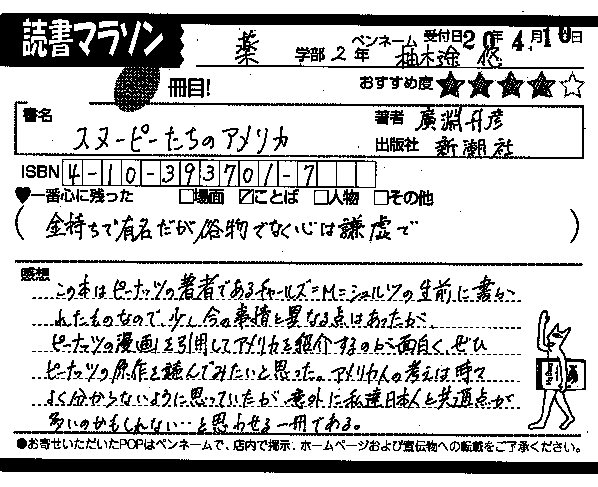 読書マラソン
薬 学部 2 年 ペンネーム 柚木涼 悠 受付日 20年 4月10日
冊目! おすすめ度 ★★★★☆
書名 スヌーピーたちのアメリカ
著者 廣淵升彦
出版社 新潮社
ISBN 4-10-393701-7
♥一番心に残った □場面 ☑ことば □人物 □その他
(金持ちで有名だが俗物でなく心は謙虚で )
感想
この本はピーナッツの著者であるチャールズ=M=シュルツの生前に書か
れたものなので、少し今の事情と異なる点はあったが、
ピーナッツの漫画を引用してアメリカを紹介するのが面白く、ぜひ
ピーナッツの原作を読んでみたいと思った。アメリカ人の考えは時々
よく分からないように思っていたが、意外に私達日本人と共通点が
多いのかもしれない…と思わせる一冊である。
●お寄せいただいたPOPはペンネームで、店内で掲示、ホームページおよび宣伝物への転載をご了承ください。